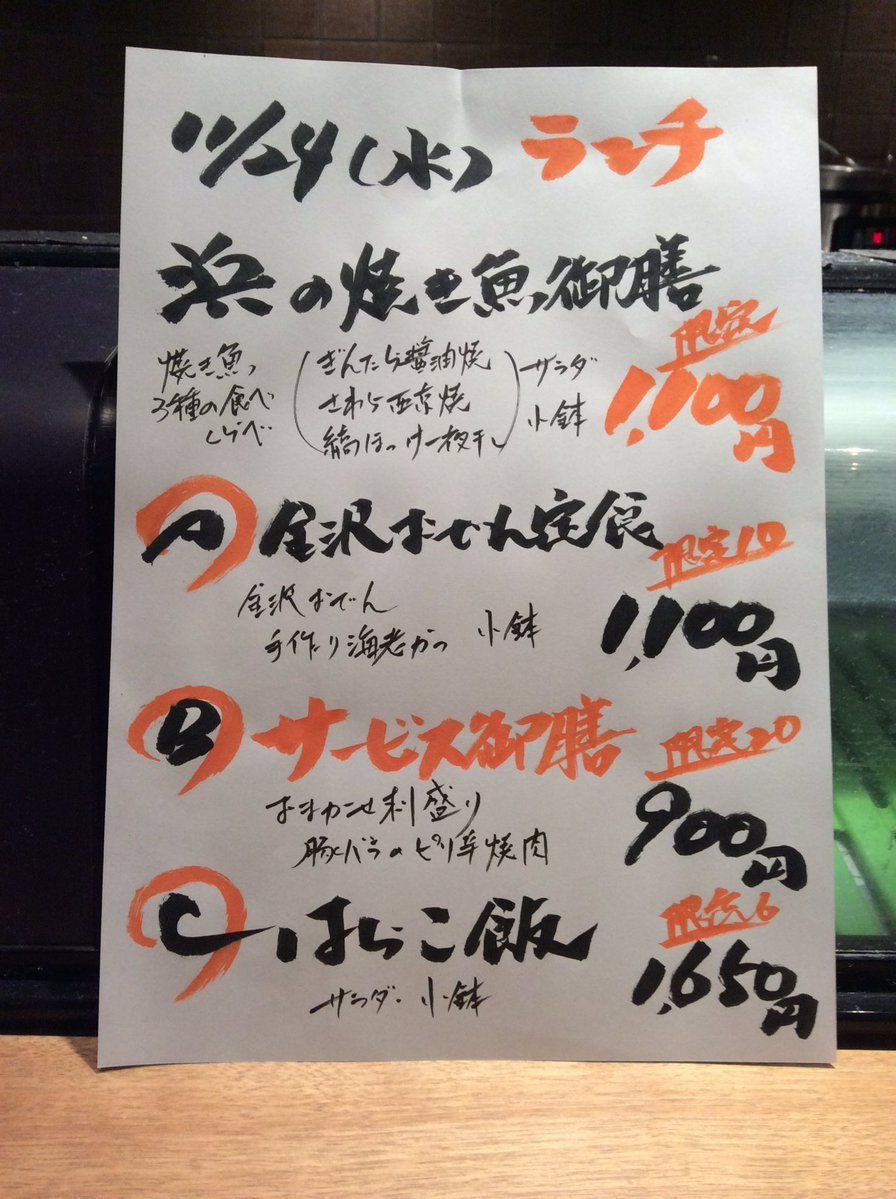 11/24(水) ランチ
浜の焼き魚御膳
限定
焼き魚
3種の食べ
くらべ
(ぎんだら醤油焼
さわら西京焼
縞ほっけ一夜干し)
サラダ
小鉢
1,100円
A 金沢おでん定食
限定10
金沢おでん
手作り海老かつ 小鉢
1,100円
B サービス御膳
限定20
おまかせ刺盛り
豚バラのピリ辛焼肉
900円
C はらこ飯
限定6
サラダ・小鉢
1,650円